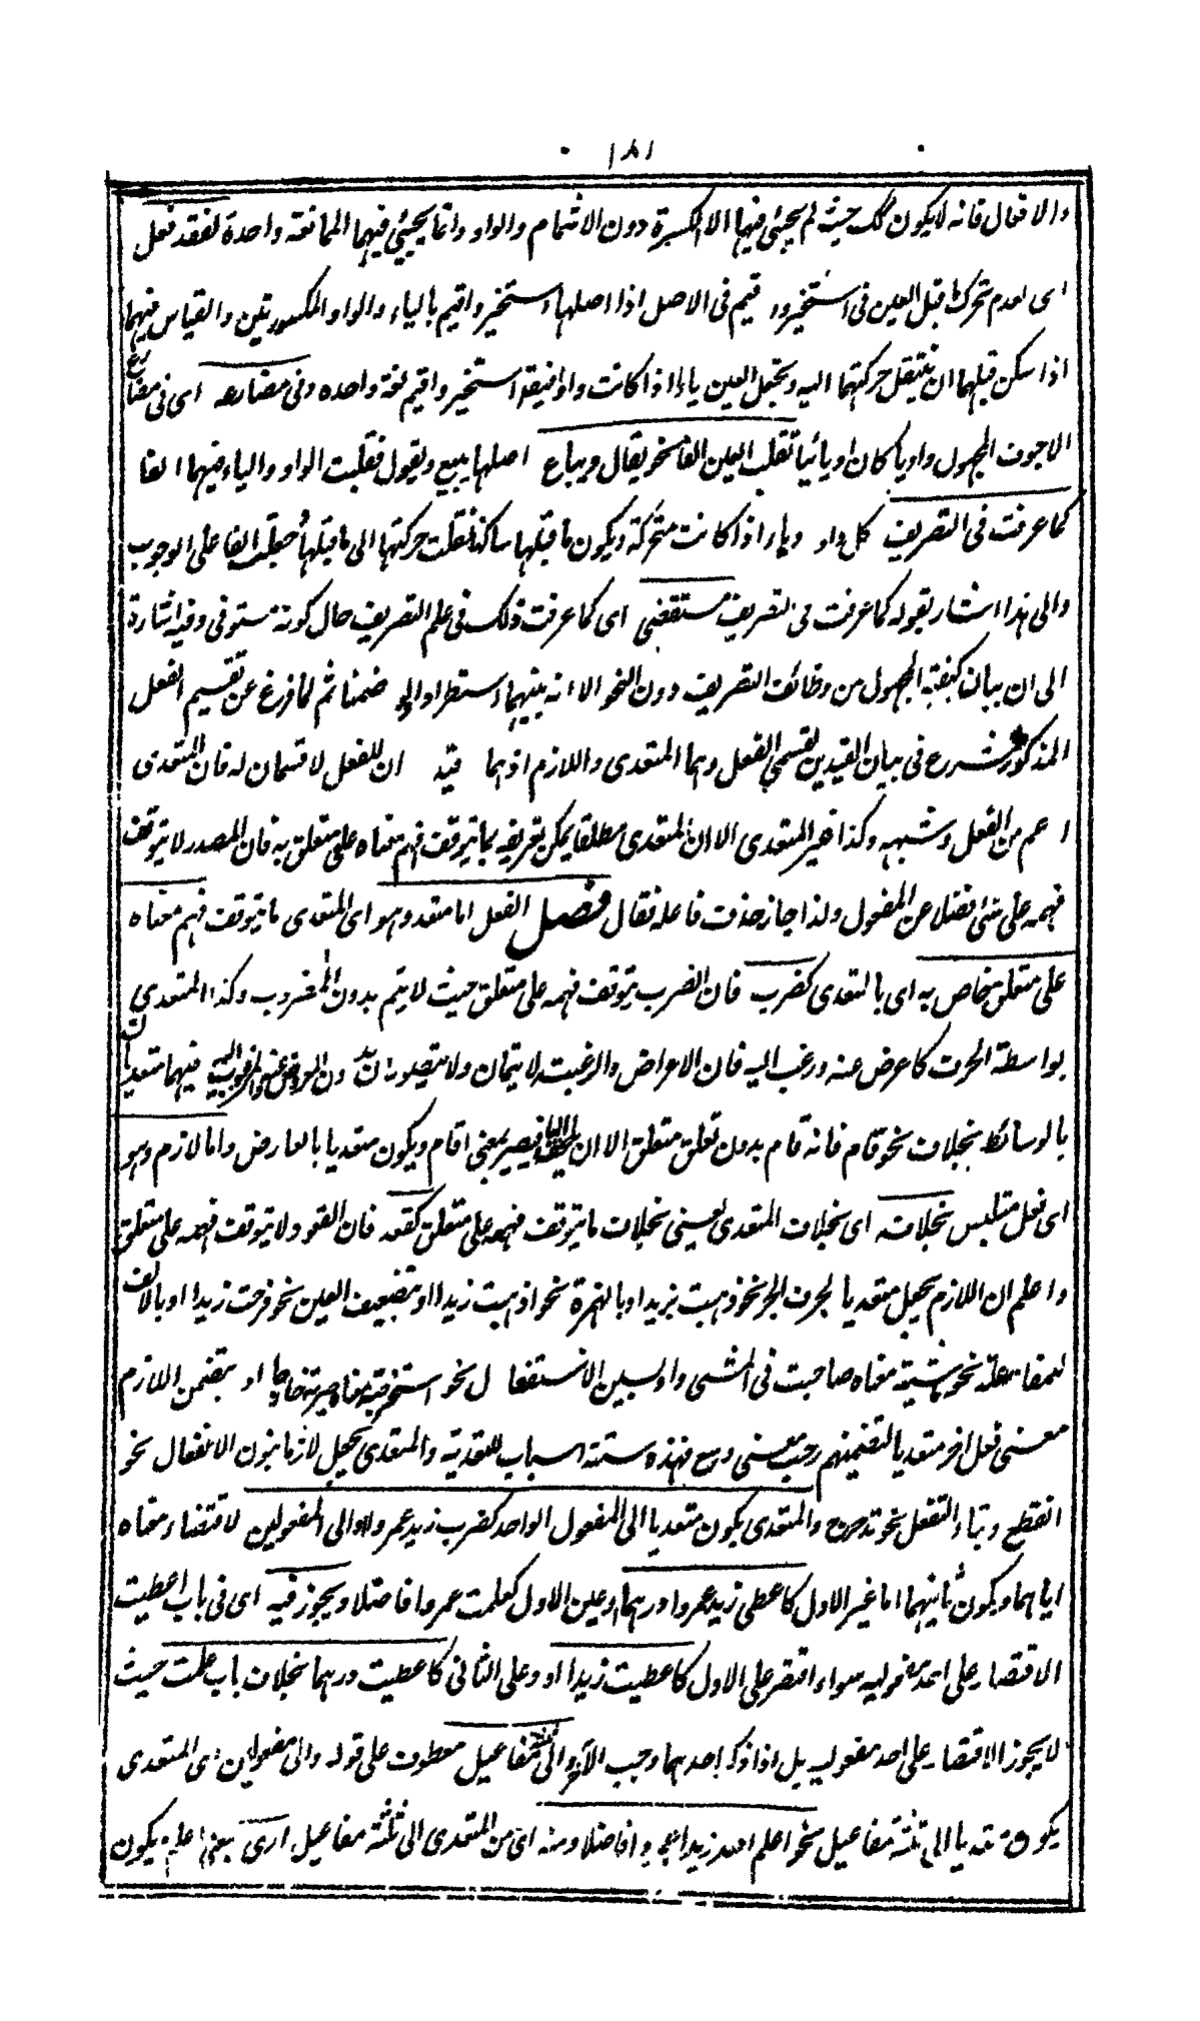 ١٨١
والافعال فانه لايكون كك حيث لم يجيئ فيها الا الكسرة دون الاشمام والواو وانما يجيئ فيهما لغة واحدة لفقد فعل
اى لعدم تحرك ما قبل العين فى استخير و قيم فى الاصل اذا اصلها استخير واقيم بالياء والواو المكسورتين والقياس فيهما
اذا سكن قبلهما ان ينتقل حركتهما اليه وتجعل العين ياء اذا كانت واوا فيقال استخير واقيم لغة واحده وفى مضارعه اى فى مضارع
الاجوف المجهول واويا كان او يائيا تقلب العين الفا نحو يقال ويباع اصلها يبيع ويقول فقلبت الواو والياء فيهما الفا
كما عرفت فى التصريف كل واو وياء اذا كانت متحركة ويكون ما قبلها ساكنا نقلت حركتها الى ما قبلها جعلت الفا على الوجوب
والى هذا اشار بقوله كما عرفت فى التصريف مستقصى اى كما عرفت ذلك فى علم التصريف حال كونه مستوفى وفيه اشارة
الى ان بيان كيفية المجهول من وظائف التصريف دون النحو الا انه بينهما استطرادا و ضمنا ثم لما فرغ عن تقسيم الفعل
المذكور شرع فى بيان القيدين لقسمي الفعل وهما المتعدى واللازم اذهما قيد ان للفعل لا قسمان له فان المتعدى
اعم من الفعل وشبهه وكذا غير المتعدى الا ان المتعدى مطلقا يمكن تعريفه بما يتوقف فهم معناه على متعلق به فان المصدر لا يتوقف
فهمه على شئ فضلا عن المفعول ولذا جاز حذف فاعله فقال فصل الفعل اما متعد وهو اى المتعدى ما يتوقف فهم معناه
على متعلق خاص به اى بالتعدى كضرب فان الضرب يتوقف فهمه على متعلق حيث لا يتم بدون المضروب وكذا المتعدى
بواسطة الحرف كاعرض عنه ورغب اليه فان الاعراض والرغبة لا يتمان ولا يتصوران بدون المعرض عنه والمرغوب اليه فيهما متعديان
بالوسائط بخلاف نحو قام فانه قام بدون تعلق متعلق الا ان فيصير بمعنى اقام ويكون متعديا بالعارض واما لازم وهو
اى فعل متلبس بخلافه اى بخلاف المتعدى يعنى بخلاف ما يتوقف فهمه على متعلق كقعد فان القعود لا يتوقف فهمه على متعلق
واعلم ان اللازم يجعل متعديا بحرف الجر نحو ذهبت بزيد او بالهمزة نحو اذهبت زيدا او بتضعيف العين نحو فرحت زيدا او بالالف
للمفاعلة نحو ماشيته معناه صاحبت فى المشى او بسين الاستفعال نحو استخرجته معناه صيرته خارجا او بتضمن اللازم
معنى فعل اخر متعد بالتضمينهم رحب معنى وسع فهذه ستة اسباب للتعدية والمتعدى يجعل لازما بنون الانفعال نحو
انقطع وبتاء التفعل نحو تدحرج والمتعدى يكون متعديا الى المفعول الواحد كضرب زيد عمروا والى المفعولين لاقتضاء معناه
اياهما ويكون ثانيهما اما غير الاول كاعطى زيد عمروا درهما او عين الاول كعلمت عمروا فاضلا ويجوز فيه اى فى باب اعطيت
الاقتصار على احد مفعوليه سواء اقتصر على الاول كاعطيت زيدا او وعلى الثانى كاعطيت درهما بخلاف باب علمت حيث
لا يجوز الاقتصار على احد مفعوليه بل اذا ذكر احدهما وجب الآخر والى ثلثة مفاعيل معطوف على قوله والى مفعولين اى المتعدى
يكون متعديا الى ثلثة مفاعيل نحو اعلم الله زيدا عمروا فاضلا ومنه اى من المتعدى الى ثلثة مفاعيل ارى بمعنى اعلم يكون